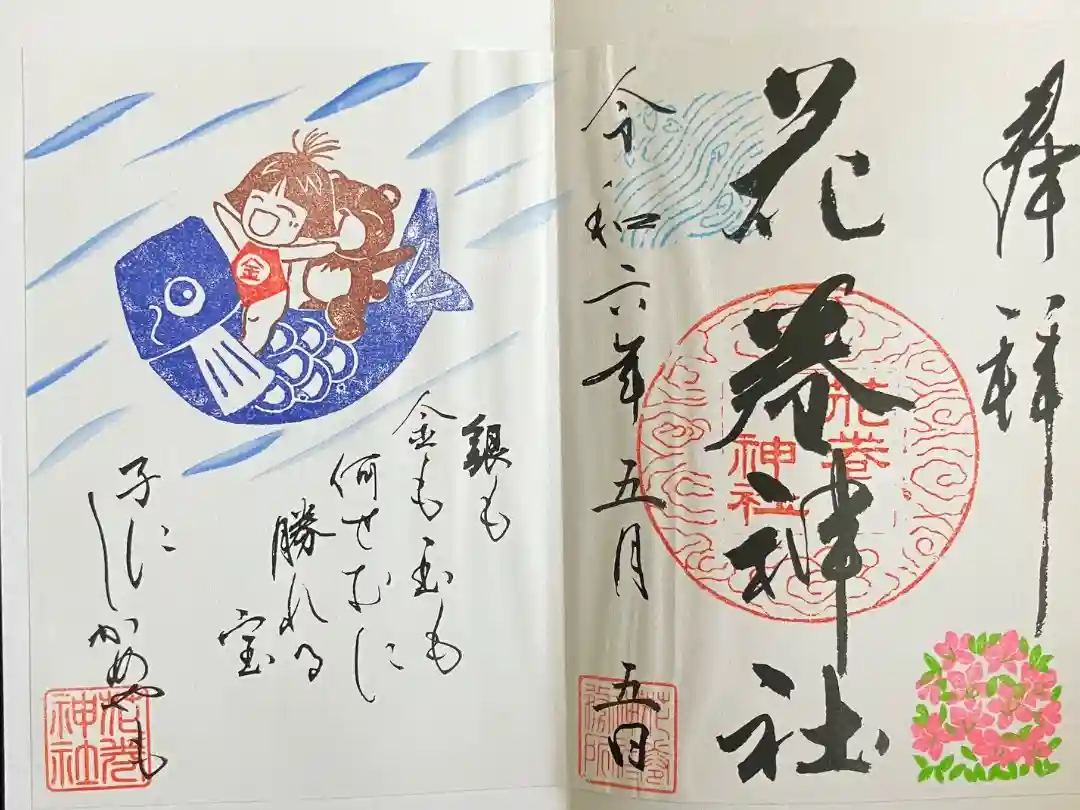 奉拝
花巻神社
花巻
神社
令和六年五月五日
金
銀も
金も玉も
何せむに
勝れる
宝
子にしかめやも
花巻
神社